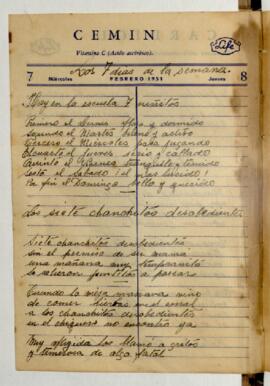 CEMIN
Vitamina C (Acido ascórbico).
Life
Los 7 dias de la semana.
7 Miércoles FEBRERO 1951 Jueves 8
Hay en la escuela 7 niñitos
Primero el Lunes flojo y dormido
Segundo el Martes bueno y activo
Tercero el Miércoles pasa jugando
El cuarto el Jueves serio y callado
Quinto el Viernes tranquilo y tímido
Sesto el Sabado el mas lucido!
Por fin el Domingo bello y querido
Los siete chanchitos desobedientes
Siete chanchitos desobedientes
sin el permiso de su mama
una mañana muy tempranito
la salieron juntitos a pasear
Cuando la vieja mamara vino
de comer hierbas en el corral
a los chanchitos desobedientes
en el chiquero no encontro ya
Muy afligida los llamó a gritos
y temerosa de algo fatal